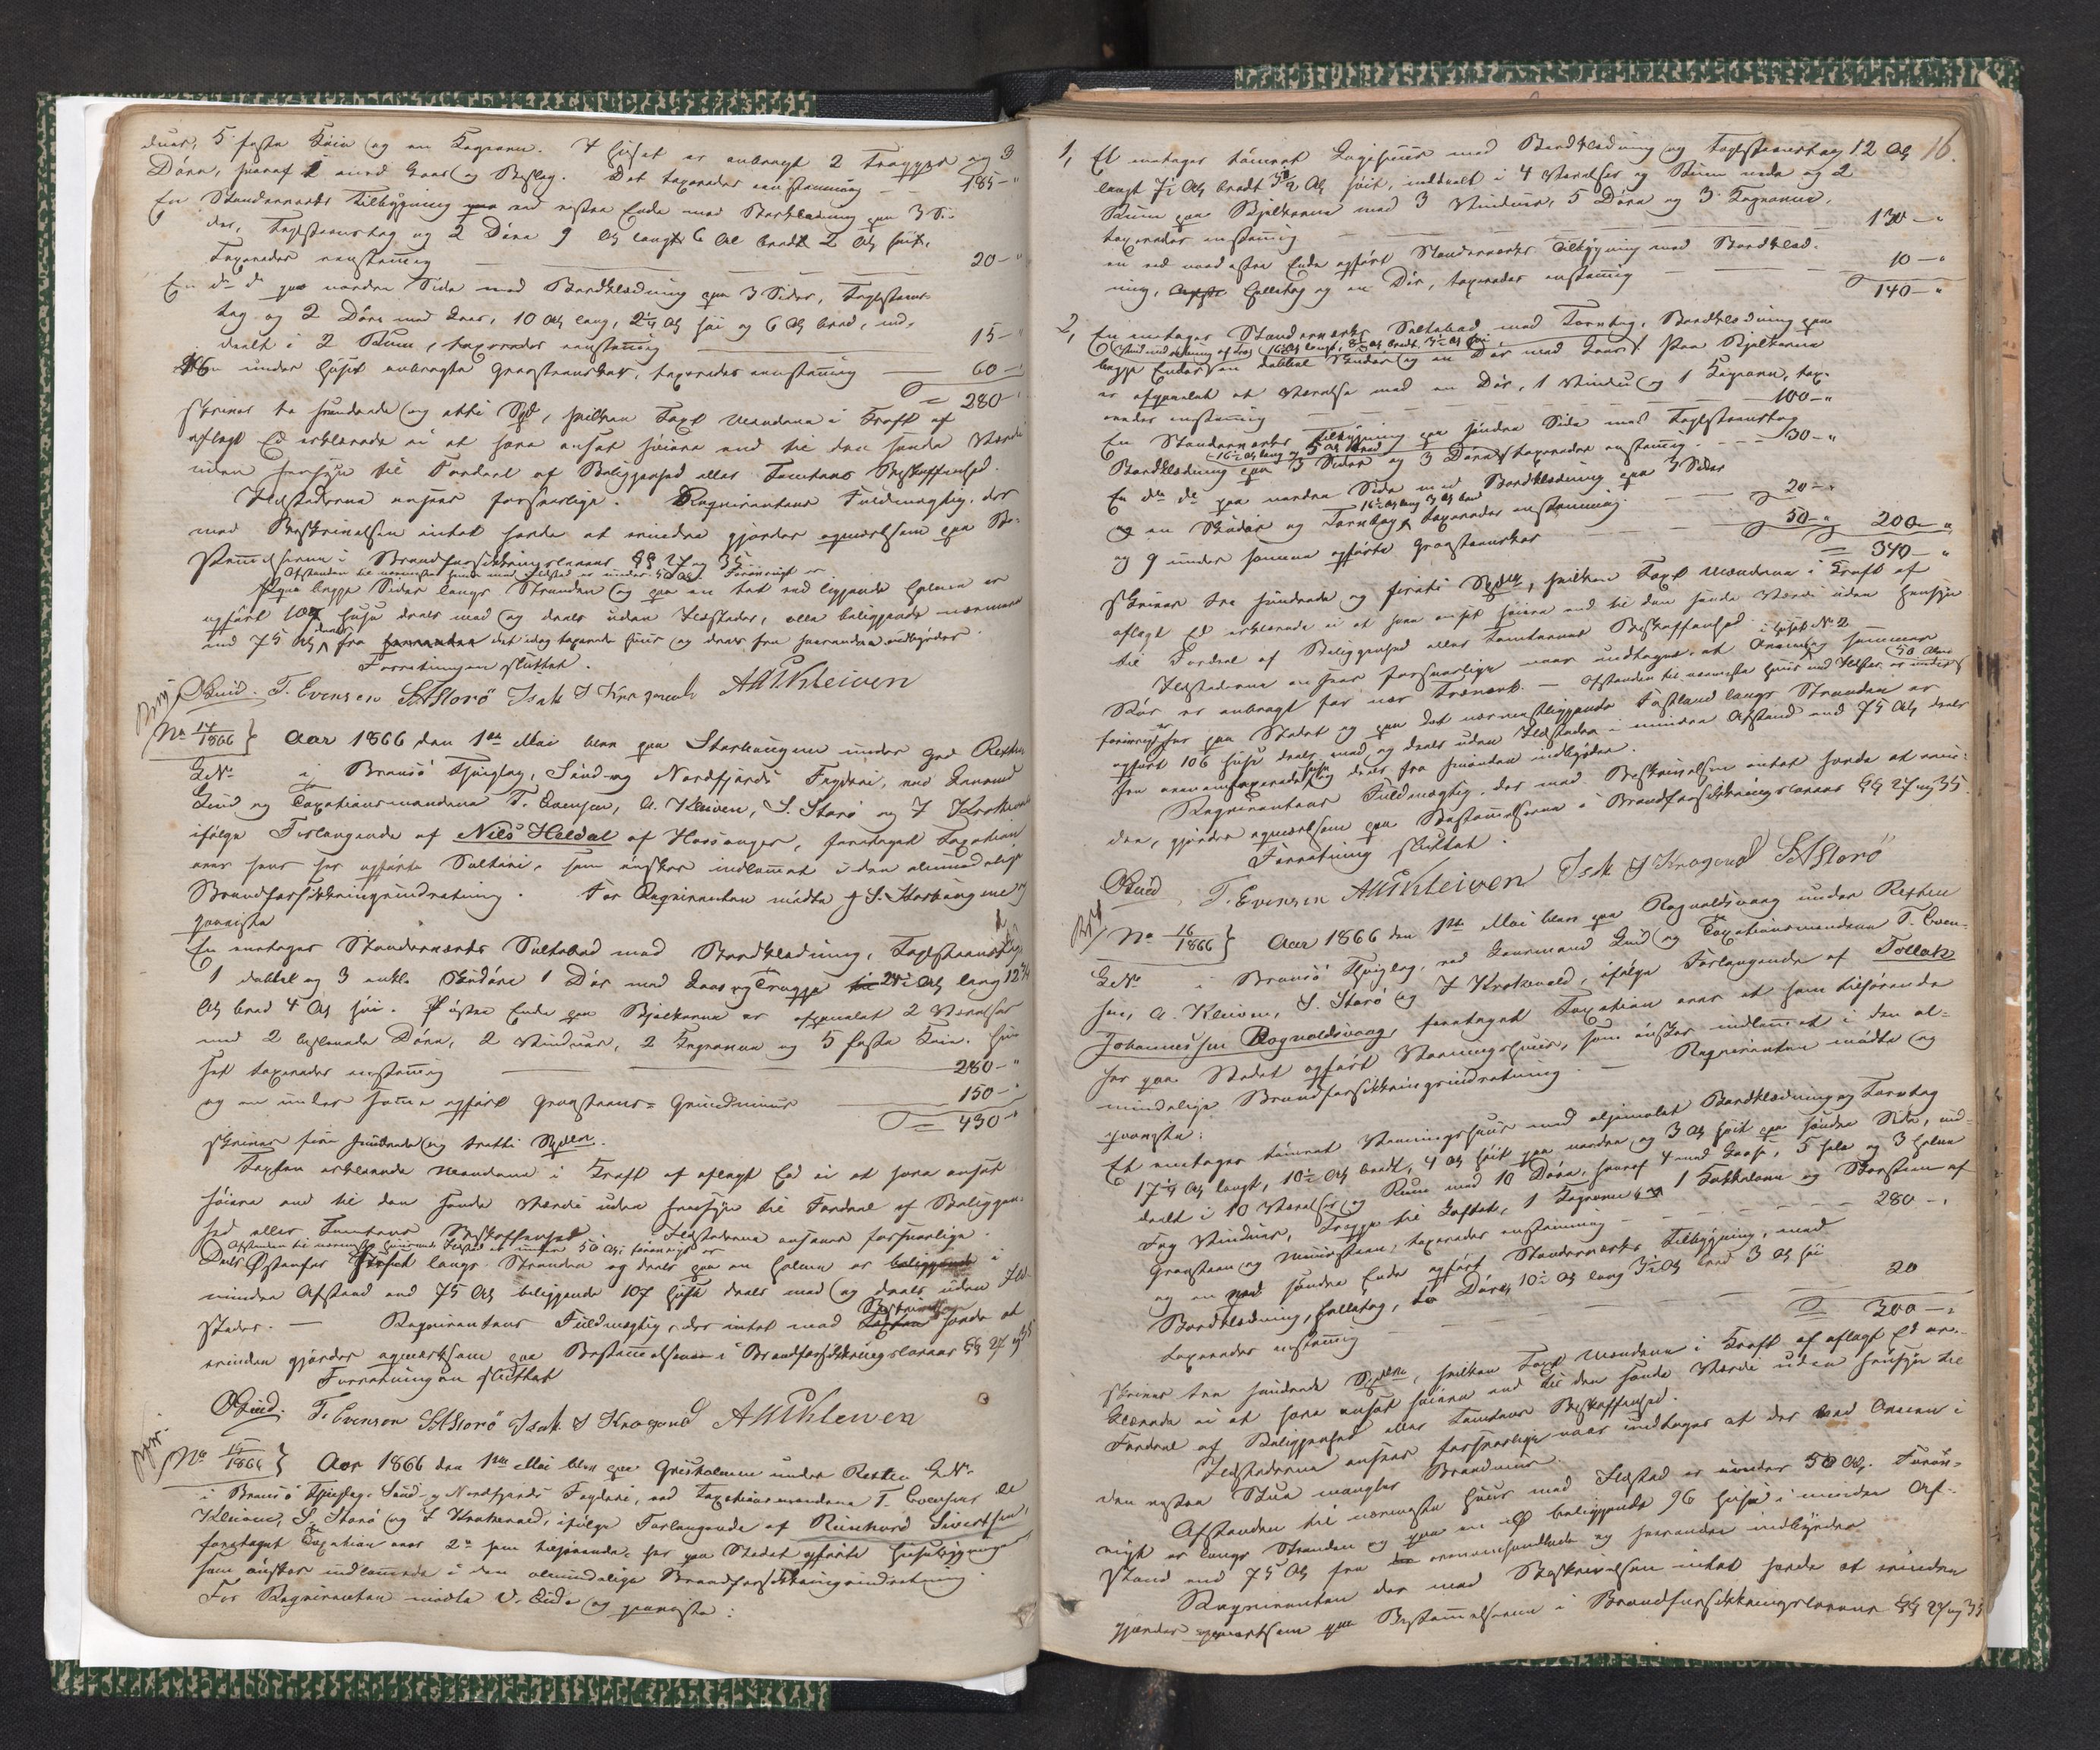 duer, 5 faste Køier og en Kakovn. I Huset er anbragt 2 Trapper og 3
Døre, hvoraf 1 med Laas og Beslag. Det taxeredes enstemmig 185 - "
En Standerværks Tilbygning ved vestre Ende med Bordklædning paa 3 Si-
der, Teglsteenstag og 2 Døre 9 Al. langt 6 Al. bredt 2 Al. høit,
Taxeredes eenstemmig 20 - "
En do do paa nordre Side med Bordklædning paa 3 Sider, Teglsteens-
tag og 2 Døre med Laas, 10 Al. lang, 2 1/4 Al. høi og 6 Al. bred, ind-
deelt i 2 Rum, taxeredes eenstemmig 15 - "
16 under Huset anbragte Graasteenskar, taxeredes eenstemmig 60 - "
= 280 - "
skriver to hundrede og otti Spd, hvilken Taxt Mændene i Kraft af
aflagt Ed erklærede ei at have ansat høiere end til den sande Værdi
uden Hensyn til Fordeel af Beliggenhed eller Tomtens Beskaffenhed.
Ildstederne ansees forsvarlige. Requirentens Fuldmægtig, der
mod Beskrivelsen intet havde at erindre gjordes opmærksom paa Be-
stemmelserne i Brandforsikkringslovens §§ 27 og 35
Afstanden til nærmeste Huus med Ildsted er under 50 Al. Forøvrigt er
Paa begge Sider langs Stranden og paa en tæt ved liggende Holme er
opført 107 Huse deels med og deels uden Ildsteder, alle beliggende nærmere
end 75 Al. deels fra det idag taxerede Huus og deels fra hverandre indbyrdes.
Forretningen sluttet.
OLuid. T. Evensen SAStorø Isak I Krogevoll AMKleiven
No 14/1866 } Aar 1866 den 1ste Mai blev paa Starhaugene under Grd Rexten
GNo i Bremsø Thinglag, Sund- og Nordfjords Fogderi, ved Lensmand
Luid og Taxationsmændene T. Evensen, A. Kleiven, S. Storø og I Krokevoll
ifølge Forlangende af Nils Heldal af Hosanger, foretaget Taxation
over hans her opførte Salteri, som ønskes indlemmet i den almindelige
Brandforsikkringsindretning. For Requirenten mødte J S. Starhaugene og
paaviste
En enetages Standerværks Saltebod med Bordklædning, Teglsteenstag
1 dobbel og 3 enkle Skudøre 1 Dør med Laas og Trappe 24 1/2 Al. lang 12 3/4
Al. bred 4 Al. høi. I østre Ende paa Bjelkerne er afpanelet 2 Værelser
med 2 beslaaede Døre, 2 Vinduer, 2 Kakovne og 5 faste Køier. Huu-
set taxeredes enstemmig 280 - "
og en under samme opført Graasteens-Grundmuur 150 - "
= 430 - "
skriver fire hundrede og tretti Spdlr.
Taxten erklærede Mændene i Kraft af aflagt Ed ei at have ansat
høiere end til den sande Værdi uden Hensyn til Fordeel af Beliggen-
hed eller Tomtens Beskaffenhed. Ildstederne ansees forsvarlige.
Afstanden til nærmeste Huus med Ildsted er under 50 Al. forøvrigt er
Deels Østenfor Huset langs Stranden og deels paa en Holme er i
mindre Afstand end 75 Al. beliggende 107 Huse deels med og deels uden Ild-
steder. - Requirentens Fuldmægtig, der intet mod Beskrivelsen havde at
erindre gjordes opmærksom paa Bestemmelserne i Brandforsikkringslovens §§ 27 og 35
Forretningen sluttet
OLuid. T. Evensen SAStorø Isak I Krogevoll AMKleiven
No 15/1866 } Aar 1866 den 1ste Mai blev paa Griisholmen under Rexten GNo
i Bremsø Thinglag, Sund- og Nordfjords Fogderi, ved Taxationsmændene T. Evensen, A.
Kleiven, S. Storø og I Krokevoll, ifølge Forlangende af Reinhard Sivertsen,
foretaget Taxation over 2de ham tilhørende, her paa Stedet opførte Huusbygninger
som ønskes indlemmede i den almindelige Brandforsikkringsindretning.
For Requirenten mødte O. Eide og paaviste:
16.
1, Et enetages tømret Logishuus med Bordklædning og Teglsteenstag 12 Al.
langt 7 1/2 Al. bredt 3 1/2 Al. høit, inddeelt i 4 Værelser og Ruum nede og 2
Ruum paa Bjelkerne med 3 Vinduer, 5 Døre og 3 Kakovne,
taxeredes enstemmig 130 - "
en ved nordøstre Ende opført Standerværks Tilbygning med Bordklæd-
ning, Helletag og en Dør, taxeredes enstemmig 10 - "
140 - "
2, En enetages Standerværks Saltebod med Tørvtag, Bordklædning paa
16 1/2 Al. langt, 8 1/2 Al. bredt, 3 1/2 Al. høi
begge Ender en dobbel Skudør og en Dør med Laas. Paa Bjelkerne
er afpanelet et Værelse med en Dør, 1 Vindue og 1 Kakovn, tax-
eredes enstemmig 100 - "
En Standerværks Tilbygning paa søndre Side med Teglsteenstag
16 1/2 Al. lang og 5 Al. bred
Bordklædning paa 3 Sider og 3 Døre, taxeredes enstemmig 30 - "
En do do paa nordre Side med Bordklædning paa 3 Sider
16 1/2 Al. lang 3 Al. bred
og en Skudør og Tørvtag, taxeredes enstemmig 20 - "
og 9 under samme opførte Graasteenskar 50 - " 200 - "
= 340 - "
skriver tre hundrede og firti Spdlr, hvilken Taxt Mændene i Kraft af
aflagt Ed erklærede ei at have ansat høiere end til den sande Værdi uden Hensyn
til Fordeel af Beliggenhed eller Tomternes Beskaffenhed.
Ildstederne ansees forsvarlige naar undtages, at Ovnens i Huset No 2
Rør er anbragt for nær Træværk. - Afstanden til nærmeste Huus med Ildsted er under 50 Alen
forøvrigt er her paa Stedet og paa det nærmestliggende Fastland langs Stranden er
opført 106 Huse deels med og deels uden Ildsteder i mindre Afstand end 75 Al. deels
fra ovennævntetaxerede Huse og deels fra hinanden indbyrdes.
Requirentens Fuldmægtig, der mod Beskrivelsen intet havde at erin-
dre, gjordes opmærksom paa Bestemmelserne i Brandforsikkringslovens §§ 27 og 35.
Forretning sluttet.
OLuid, T. Evensen AMKleiven Isak I Krogevoll SAStorø
No 16/1866 } Aar 1866 den 1ste Mai blev paa Rognaldsvaag under Rexten
GNo i Bremsø Thinglag, ved Lensmand Luid og Taxationsmændene T. Even-
sen, A. Kleiven, S. Storø og I Krokevold, ifølge Forlangende af Tollak
Johannessen Rognaldsvaag, foretaget Taxation over et ham tilhørende
her paa Stedet opført Vaaningshuus, som ønskes indlemmet i den al-
mindelige Brandforsikkringsindretning. - Requirenten mødte og
paaviste:
Et enetages tømret Vaaningshuus med oljemalet Bordklædning og Tørvtag
17 1/4 Al. langt, 10 1/2 Al. bredt, 4 Al. høit paa nordre, og 3 Al. høit paa søndre Side, ind-
deelt i 10 Værelser og Rum med 10 Døre, hvoraf 4 med Laase, 5 hele og 3 halve
Fag Vinduer, Trappe til Loftet, 1 Kakovn og 1 Kakkelovn og Skorsteen af
Graasteen og Muursteen, taxeredes enstemmig 280 - "
og en ved søndre Ende opført Standerværks Tilbygning, med
Bordklædning, Helletag, to Døre, 10 1/2 Al. lang 3 1/2 Al. bred 3 Al. høi
taxeredes enstemmig 20
= 300 - "
skriver tre hundrede Spdlr, hvilken Taxt Mændene i Kraft af aflagt Ed er-
klærede ei at have ansat høiere end til den sande Værdi uden Hensyn til
Fordeel af Beliggenhed eller Tomtens Beskaffenhed.
Ildstederne ansees forsvarlige naar undtages at der ved Ovnen i
den vestre Stue mangler Brandmuur.
Afstanden til nærmeste Huus med Ildsted er under 50 Al. Forøv-
rigt er langs Stranden og paa en Ø beliggende 96 Huse i mindre Af-
stand end 75 Al. fra ovennævnte og hverandre indbyrdes
Requirenten der mod Beskrivelsen intet havde at erindre
gjordes opmærksom paa Bestemmelserne i Brandforsikkringslovens §§ 27 og 35